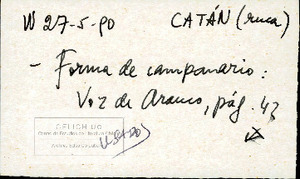 W 27-5-90 CATÁN (ruca)
- Forma de campanario:
Voz de Arauco, pág. 43
CELICH UC